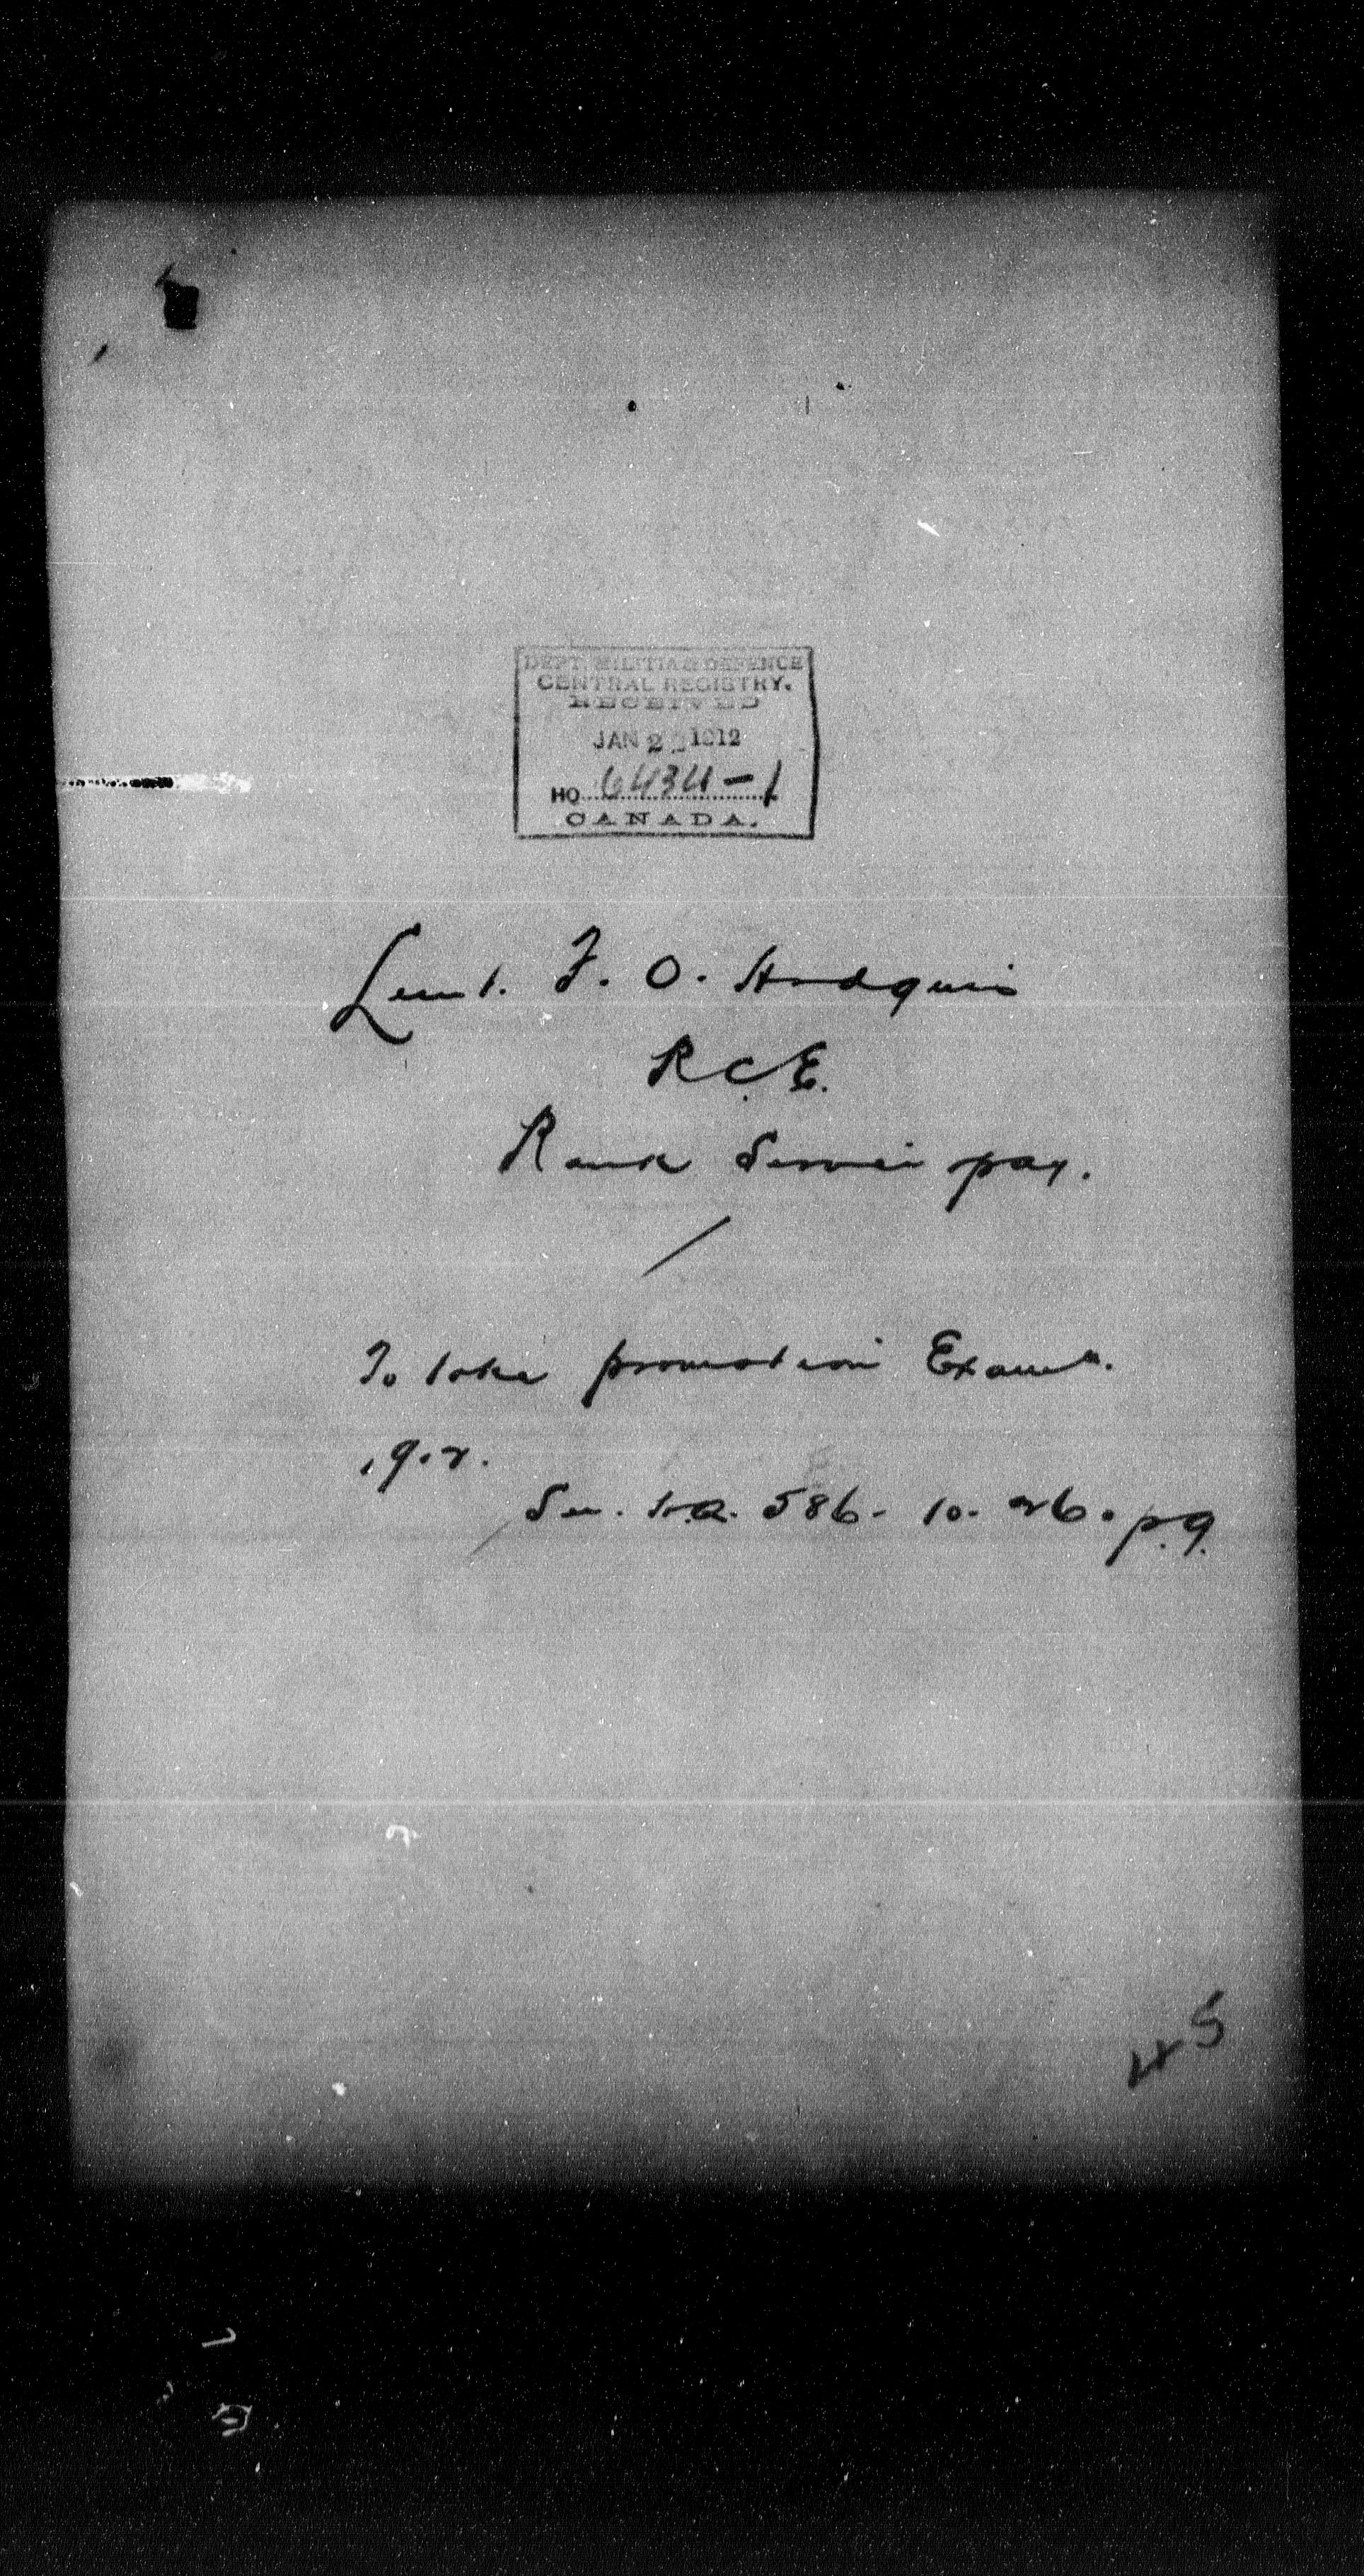 DEPT. MILITIA & DEFENCE
CENTRAL REGISTRY.
RECEIVED
JAN 2 1912
HQ 6434-1
CANADA.
Lieut. F. O. Hodgins
R.C.E.
Rank Service pay.
To take promotion Examn.
q.v.
See. H.Q. 586-10-26. p.9.
45